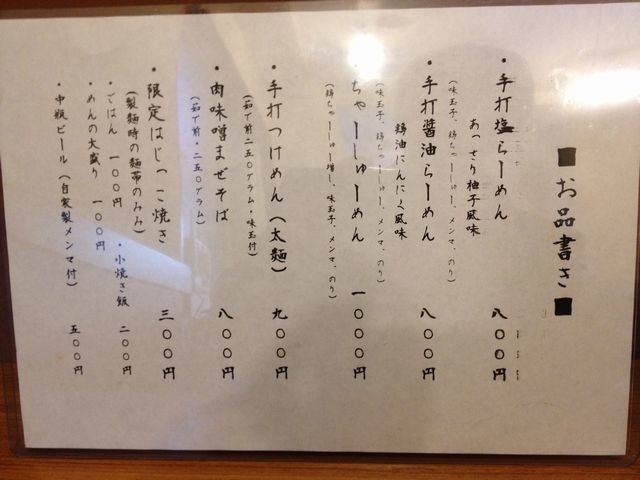 ■お品書き■
・手打塩らーめん 八〇〇円
あっさり柚子風味
(味玉子、鶏ちゃーしゅー、メンマ、のり)
・手打醤油らーめん 八〇〇円
鶏油にんにく風味
(味玉子、鶏ちゃーしゅー、メンマ、のり)
ちゃーしゅーめん 一〇〇〇円
(鶏ちゃーしゅー増し、味玉子、メンマ、のり)
・手打つけめん(太麺) 九〇〇円
(茹で前二五〇グラム・味玉付)
・肉味噌まぜそば 八〇〇円
(茹で前・二五〇グラム)
・限定はじっこ焼き 三〇〇円
(製麺時の麺帯のみみ)
・ごはん 一〇〇円 ・小焼き飯 二〇〇円
・めんの大盛り 一〇〇円
・中瓶ビール(自家製メンマ付) 五〇〇円